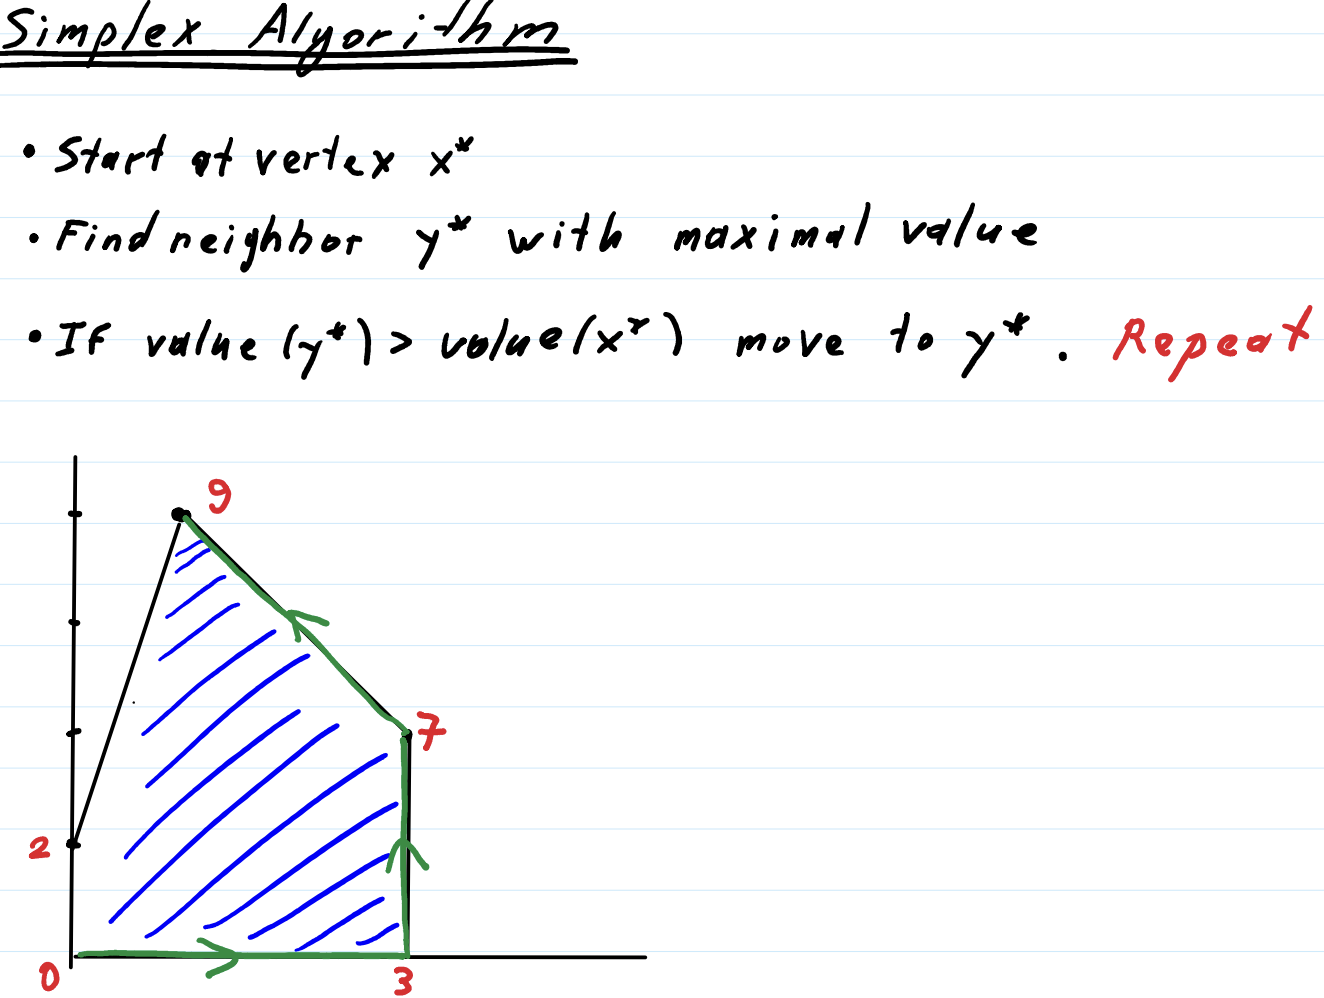 Simplex Algorithm
• Start at vertex x*
• Find neighbor y* with maximal value
• If value (y*) > value (x*) move to y*. Repeat
9
7
2
0
3